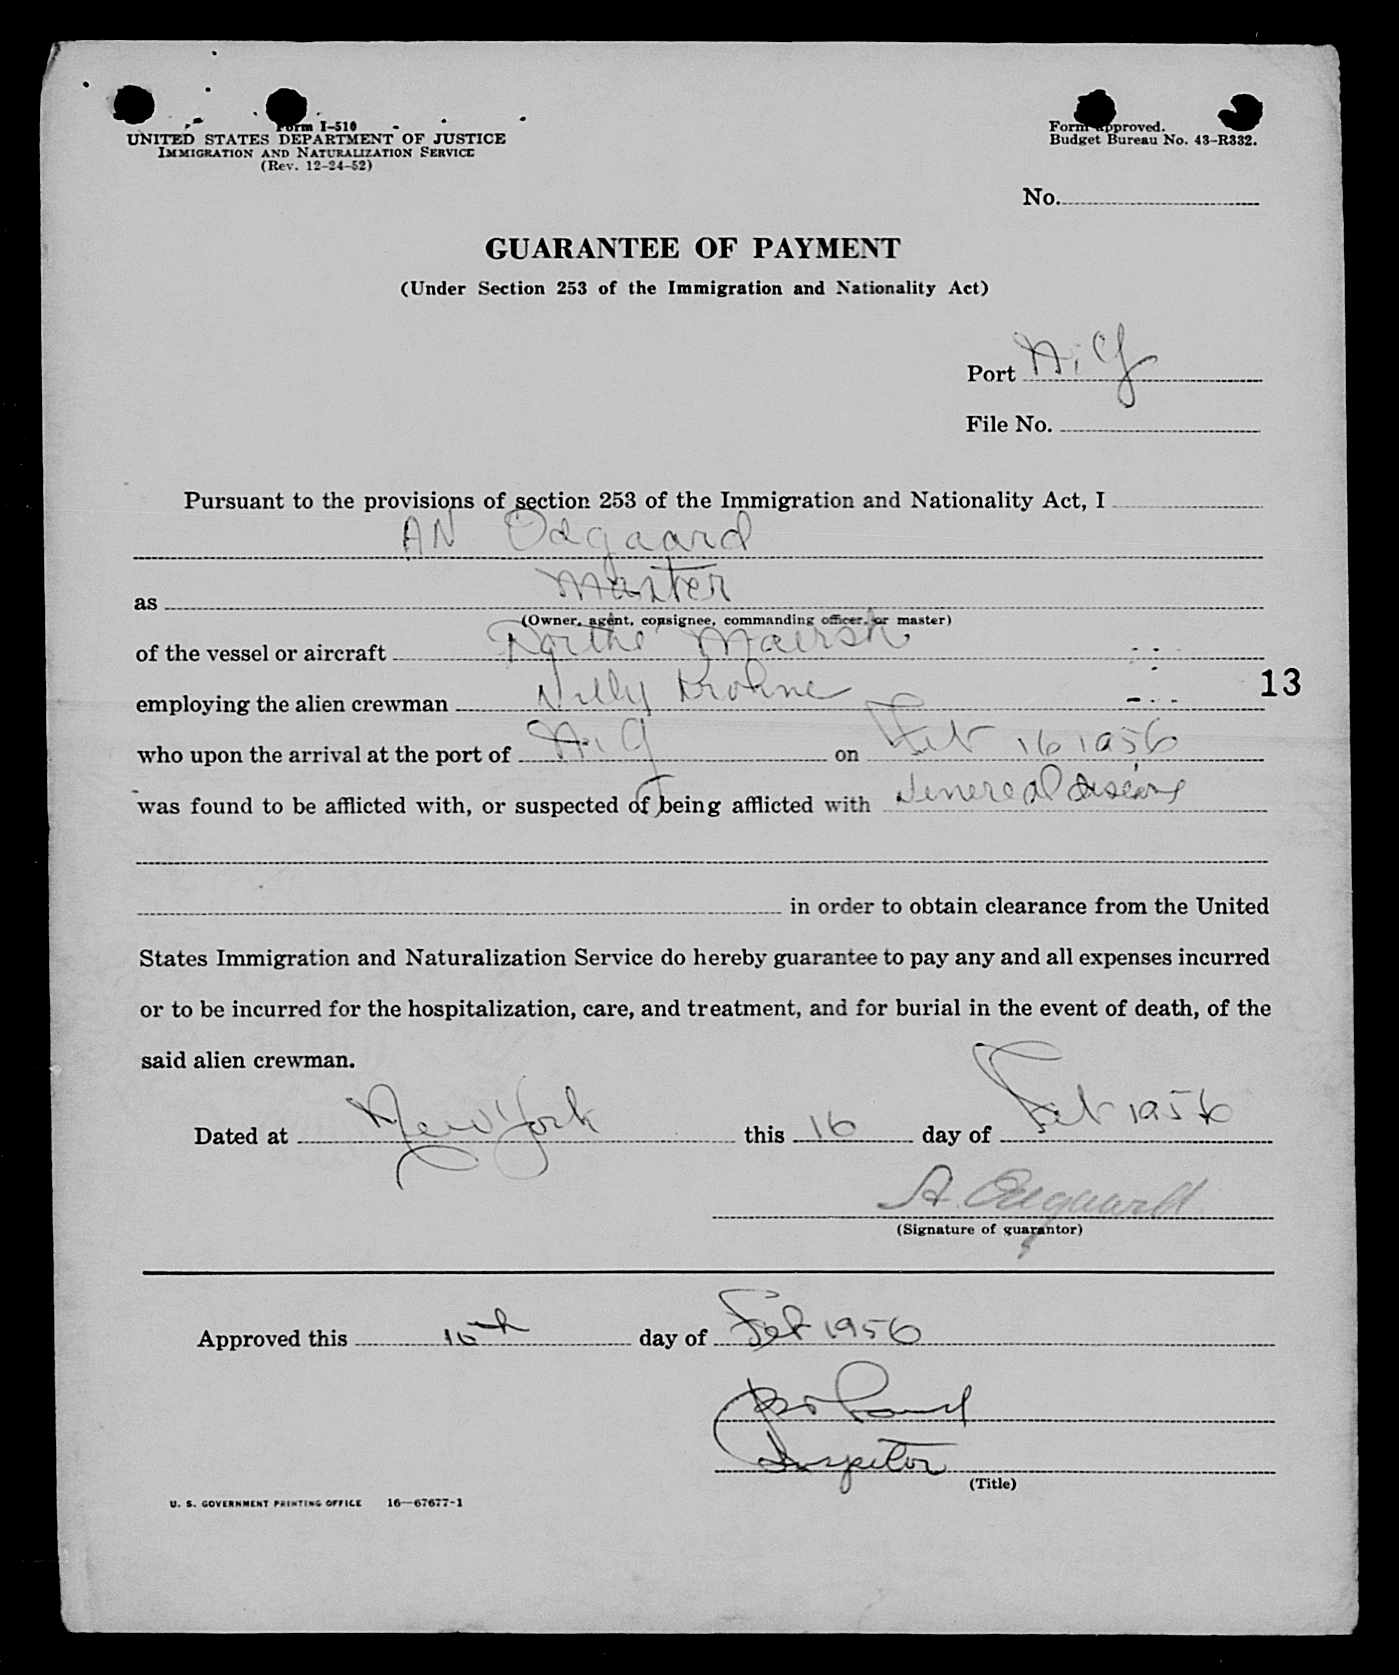 Form I-510
UNITED STATES DEPARTMENT OF JUSTICE
IMMIGRATION AND NATURALIZATION SERVICE
(Rev. 12-24-52)
Form approved.
Budget Bureau No. 43-R332.
No.
GUARANTEE OF PAYMENT
(Under Section 253 of the Immigration and Nationality Act)
Port N.Y
File No.
Pursuant to the provisions of section 253 of the Immigration and Nationality Act, I
AN Odgaard
as Master
(Owner, agent, consignee, commanding officer, or master)
of the vessel or aircraft Maersk
employing the alien crewman Willy Krohne
13
who upon the arrival at the port of N.Y on Feb 16 1956
was found to be afflicted with, or suspected of being afflicted with Venereal disease
in order to obtain clearance from the United
States Immigration and Naturalization Service do hereby guarantee to pay any and all expenses incurred
or to be incurred for the hospitalization, care, and treatment, and for burial in the event of death, of the
said alien crewman.
Dated at New York this 16 day of Feb 1956
A. Odgaard
(Signature of guarantor)
Approved this 16th day of Feb 1956
Inspector
(Title)
U. S. GOVERNMENT PRINTING OFFICE 16—67677-1